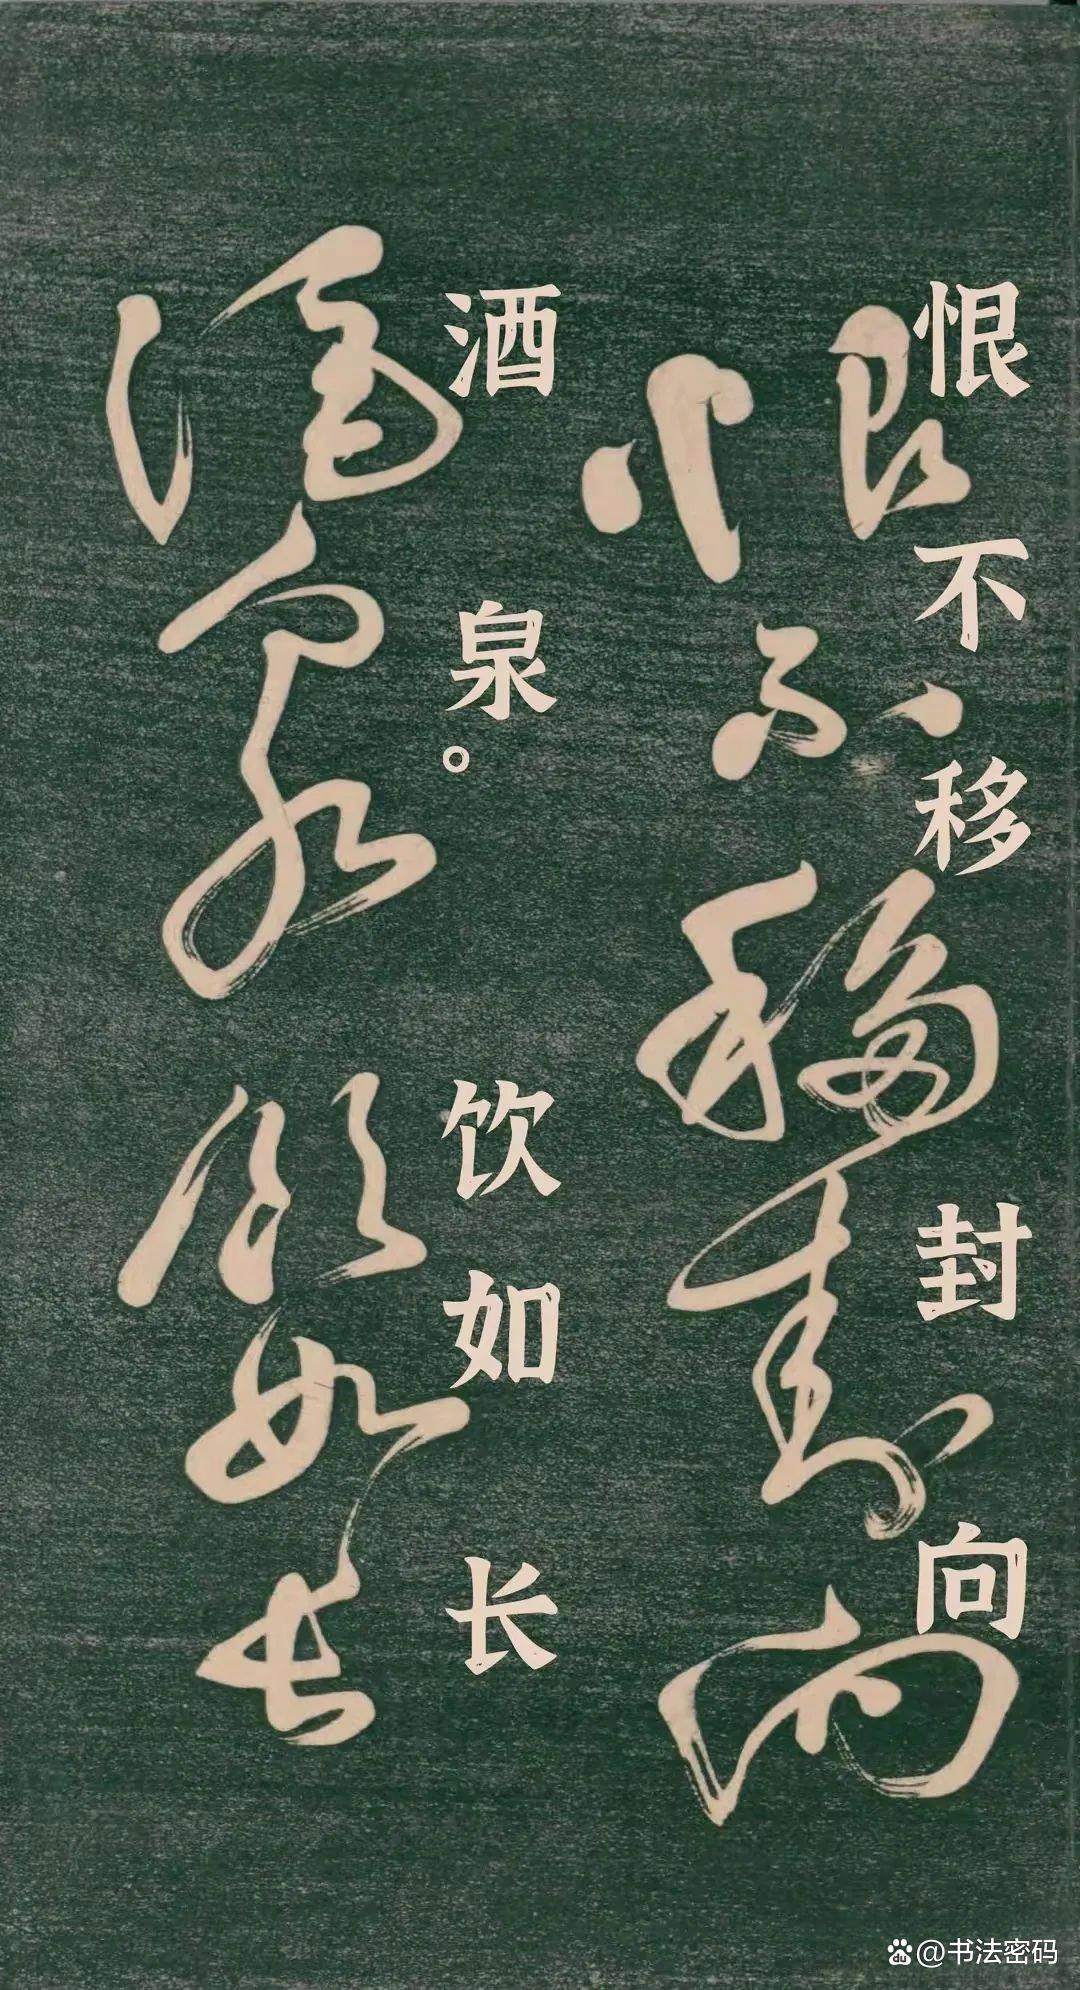 恨不移封向
酒泉。饮如长
恨不移封向
酒泉饮如长
du @书法密码